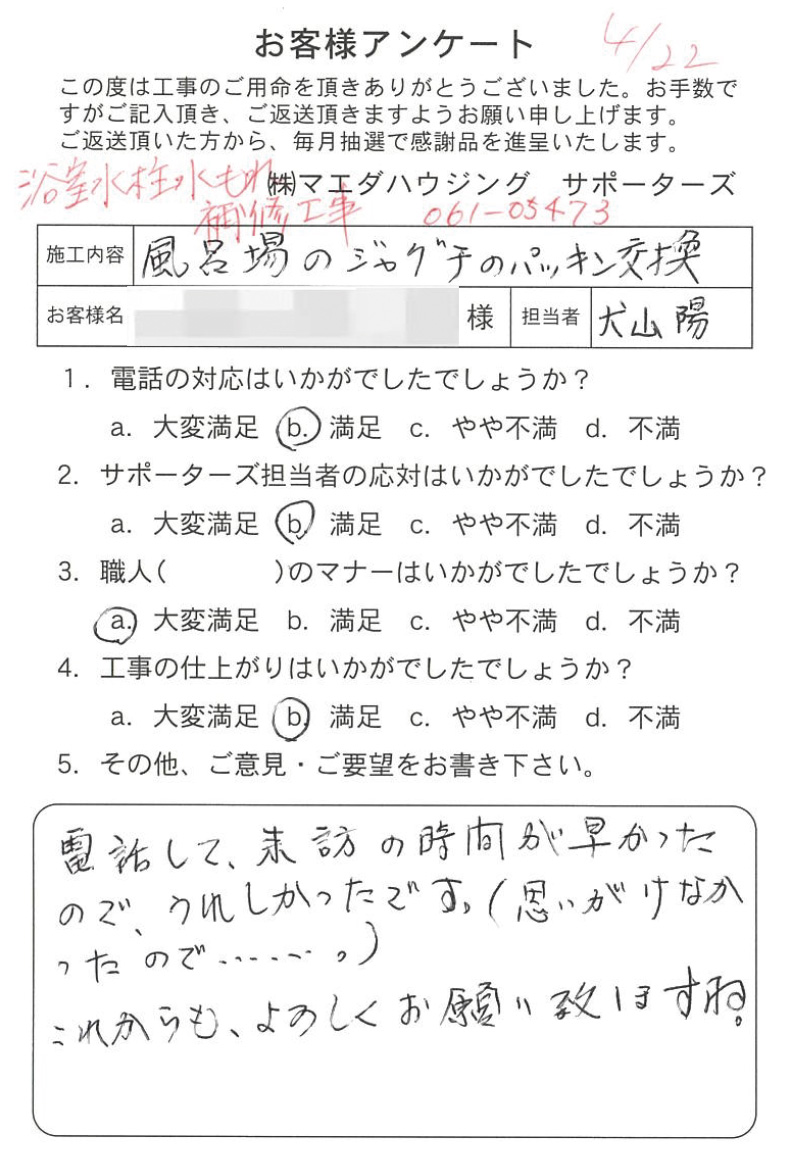 お客様アンケート
4/22
この度は工事のご用命を頂きありがとうございました。お手数で
すがご記入頂き、ご返送頂きますようお願い申し上げます。
ご返送頂いた方から、毎月抽選で感謝品を進呈いたします。
浴室水栓水もれ
㈱マエダハウジング サポーターズ
補修工事 061-05473
施工内容 風呂場のジャグチのパッキン交換
お客様名 様 担当者 犬山陽
1. 電話の対応はいかがでしたでしょうか?
a. 大変満足 b. 満足 c. やや不満 d. 不満
2. サポーターズ担当者の応対はいかがでしたでしょうか?
a. 大変満足 b. 満足 c. やや不満 d. 不満
3. 職人( )のマナーはいかがでしたでしょうか?
a. 大変満足 b. 満足 c. やや不満 d. 不満
4. 工事の仕上がりはいかがでしたでしょうか?
a. 大変満足 b. 満足 c. やや不満 d. 不満
5. その他、ご意見・ご要望をお書き下さい。
電話して、来訪の時間が早かった
ので、うれしかったです。(思いがけなか
ったので……。)
これからも、よろしくお願い致しますね。